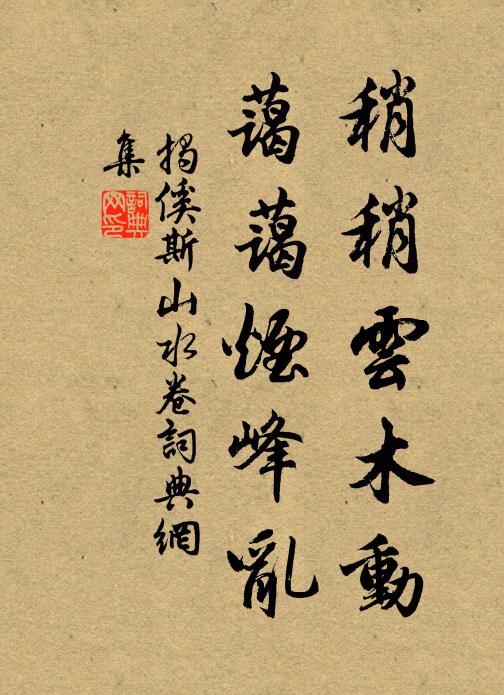 稍稍雲木動
藹藹煙峰亂
揭傒斯山水卷詞典網
集
詞典
网印